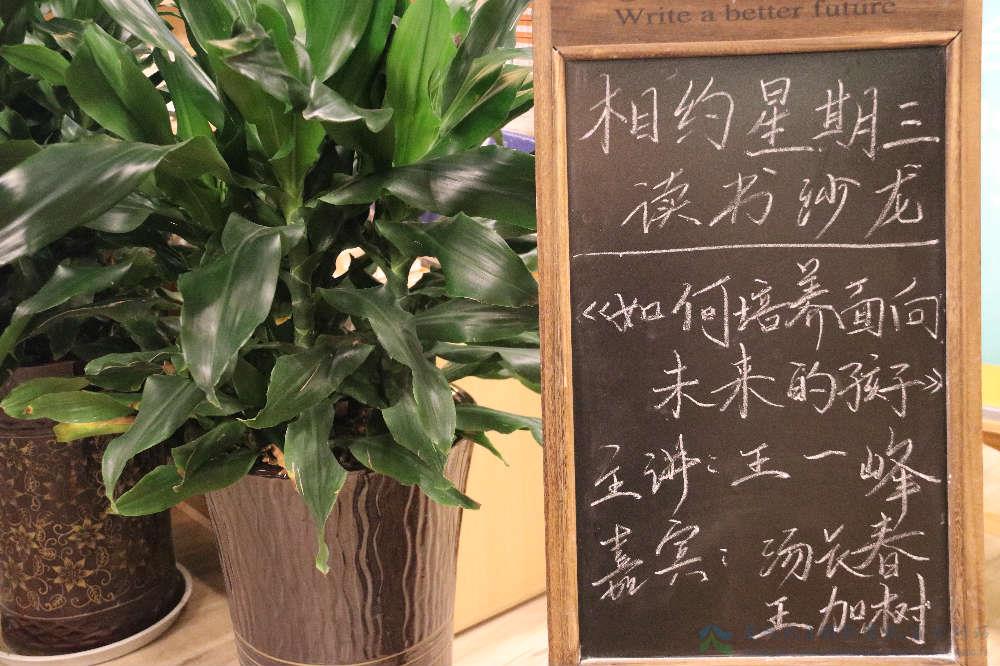 Write a better future
相约星期三
读书沙龙
《如何培养面向
未来的孩子》
主讲：王一峰
嘉宾：汤长春
王加树